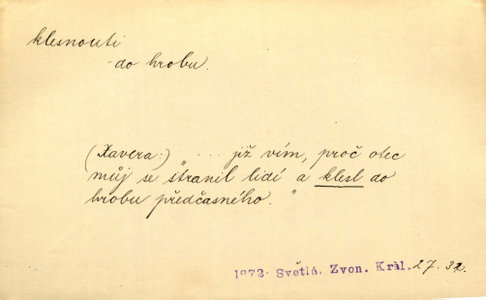 klesnouti
do hrobu.
(Xavera:) „... již vím, proč otec
můj se stranil lidí a klesl do
hrobu předčasného."
1872. Světlá. Zvon. Král. 27. 32.